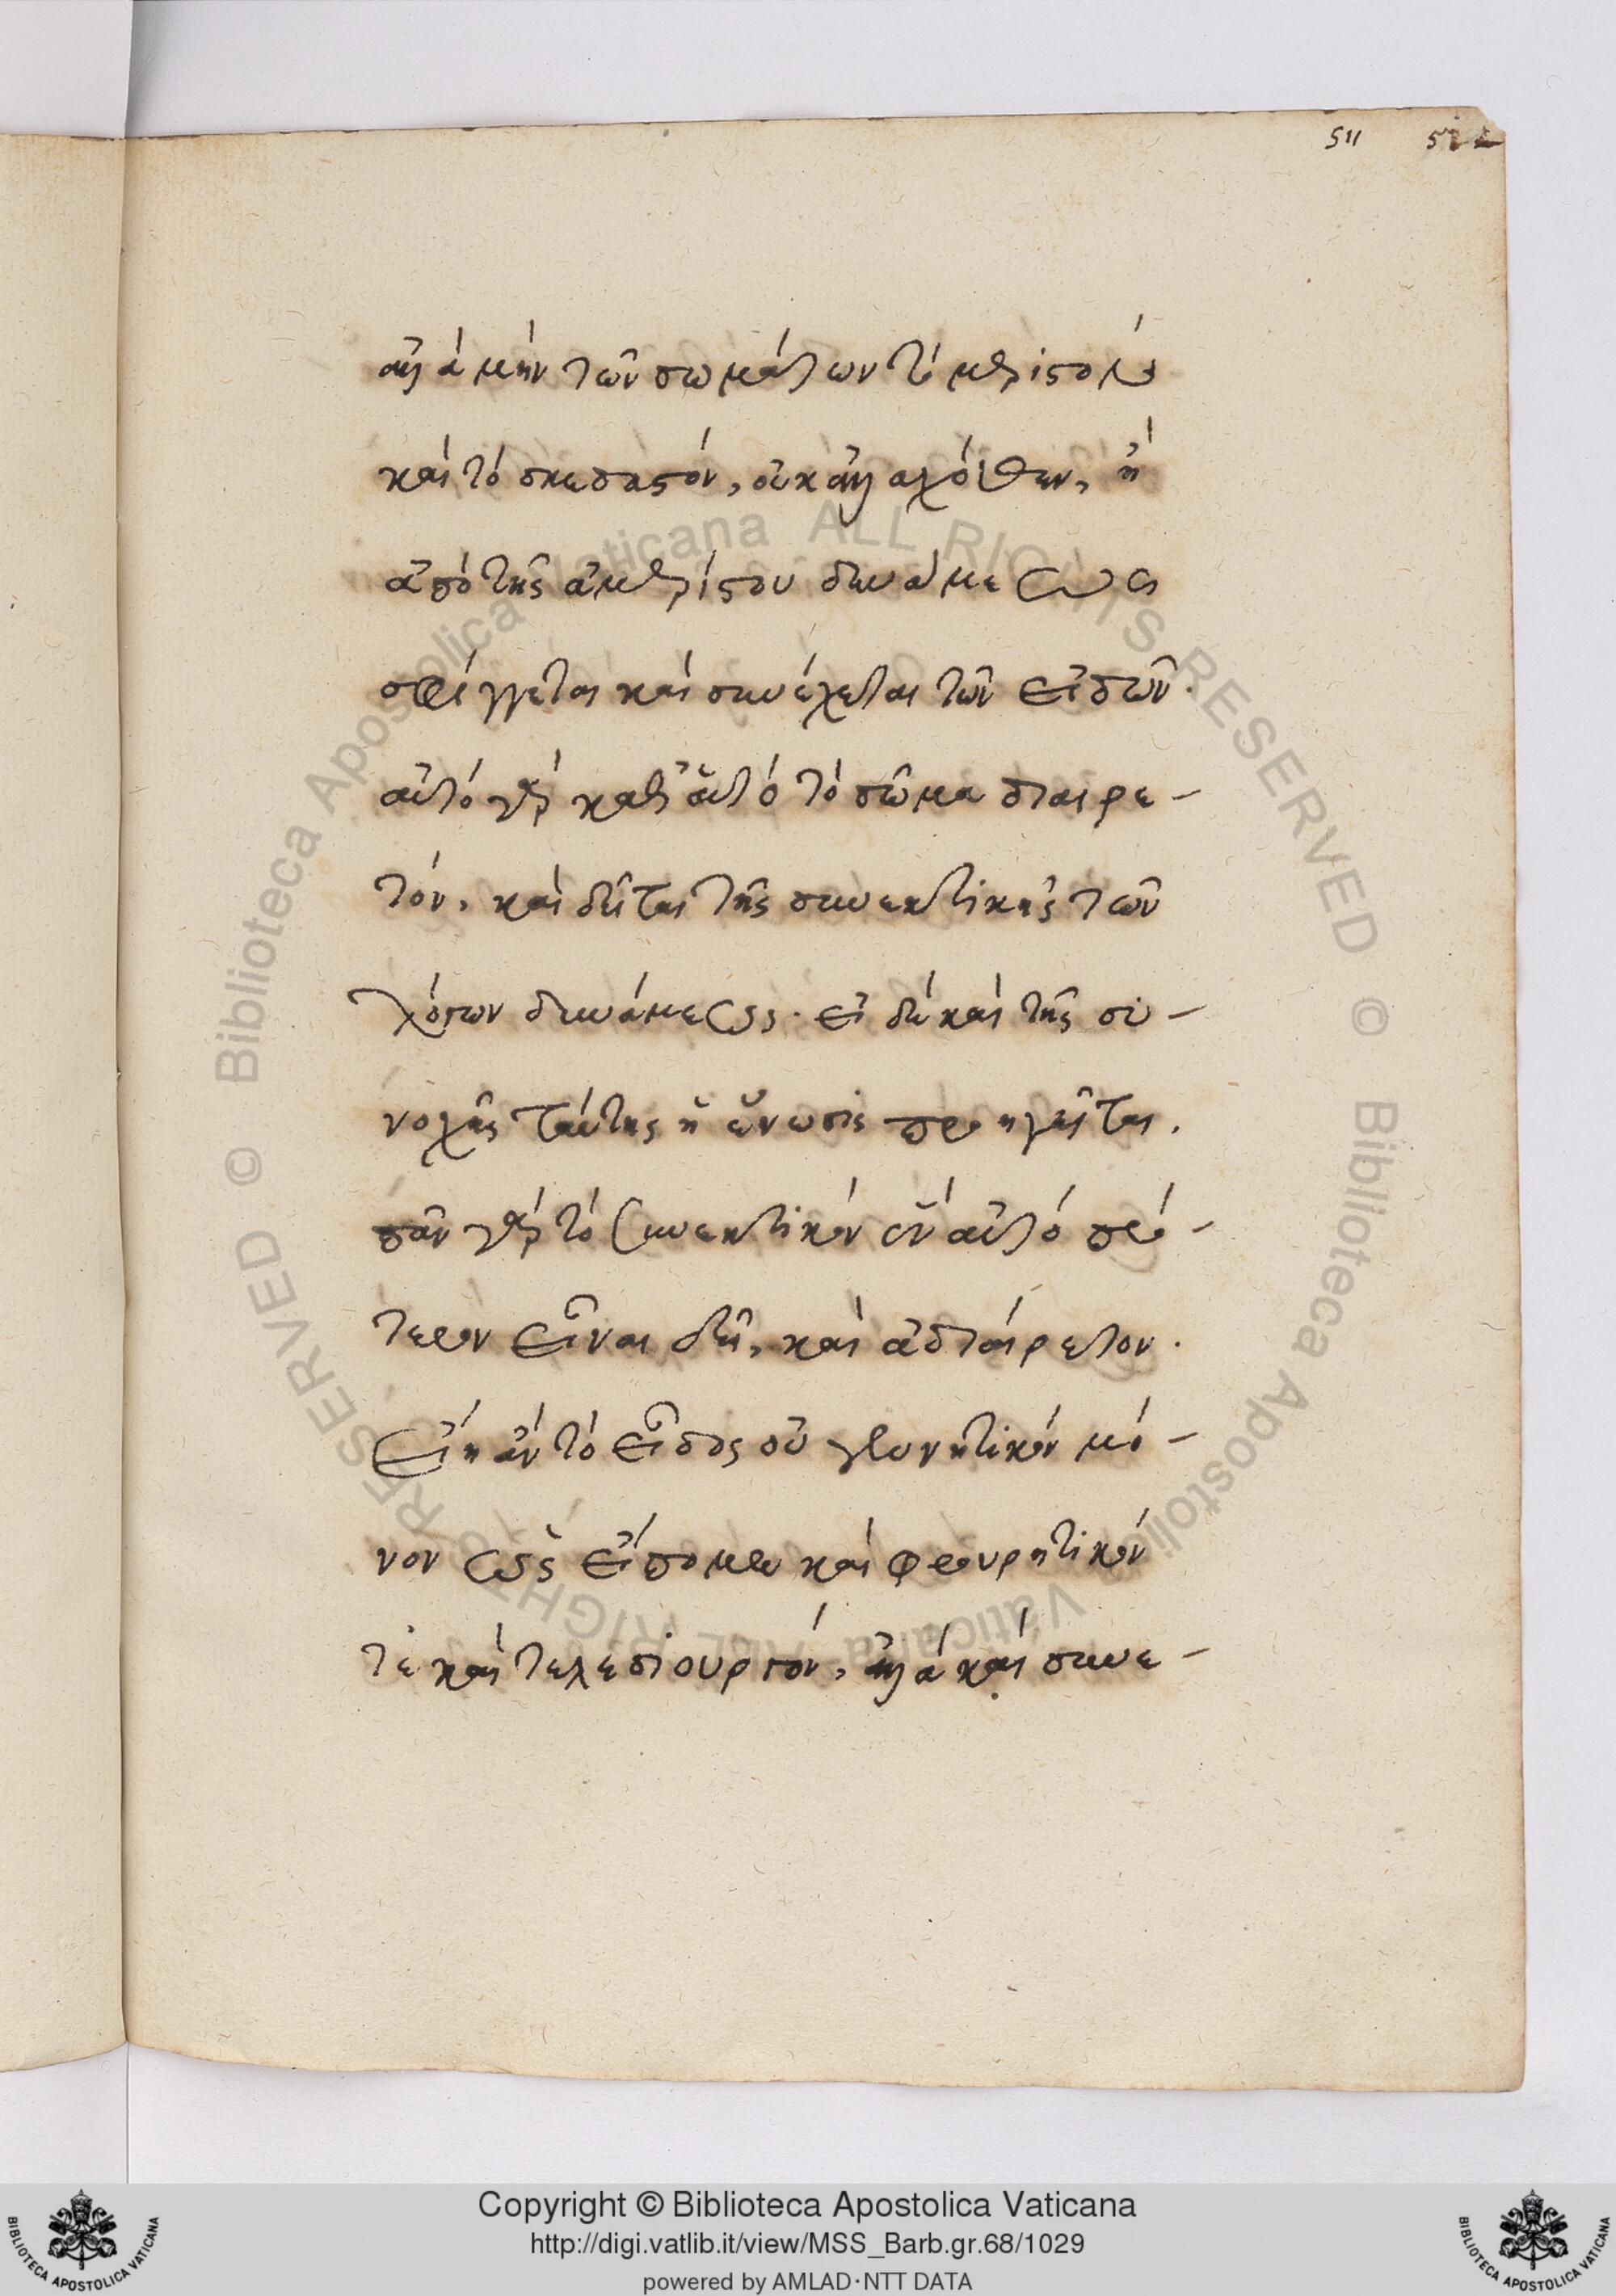 511 512
ἀλλὰ μὴν τῶν σωμάτων τὸ μεριστὸν
καὶ τὸ σκεδαστὸν, οὐκ ἄλλοθεν, ἢ
ἀπὸ τῆς ἀμερίστου δυνάμεως
σφίγγεται καὶ συνέχεται τῶν εἰδῶν.
αὐτὸ γὰρ καθ' αὑτὸ τὸ σῶμα διαιρε-
τὸν, καὶ δεῖται τῆς συνεκτικῆς τῶν
λόγων δυνάμεως. εἰ δὲ καὶ τῆς συ-
νοχῆς ταύτης ἡ ἕνωσις προηγεῖται.
πᾶν γὰρ τὸ συνεκτικὸν ἓν αὐτὸ πρό-
τερον εἶναι δεῖ, καὶ ἀδιαίρετον.
Εἴη ἂν τὸ εἶδος οὐ γεννητικὸν μό-
νον ὡς εἴπομεν καὶ φρουρητικόν
τε καὶ τελεσιουργόν, ἀλλὰ καὶ συνε-
Copyright © Biblioteca Apostolica Vaticana
http://digi.vatlib.it/view/MSS_Barb.gr.68/1029
powered by AMLAD·NTT DATA
BIBLIOTECA APOSTOLICA VATICANA
BIBLIOTECA APOSTOLICA VATICANA
© Biblioteca Apostolica Vaticana ALL RIGHTS RESERVED
© Biblioteca Apostolica Vaticana ALL RIGHTS RESERVED